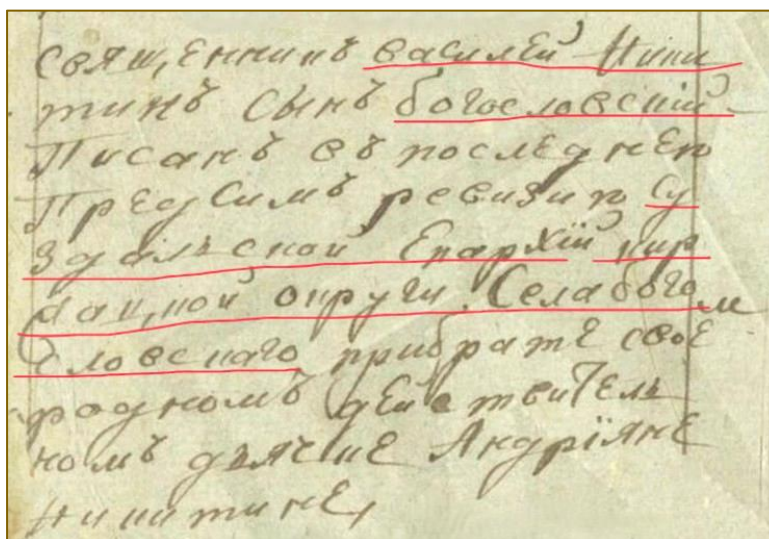 священникъ василей Ники
тинъ сынъ богословский
Писанъ въ последнею
Предъсимъ ревизию Су
здальской Епархіи кир
жацкой округи. Села бого
словскаго прибрате своем
родномъ действитель
номъ дьячке Андріяне
Никитине,